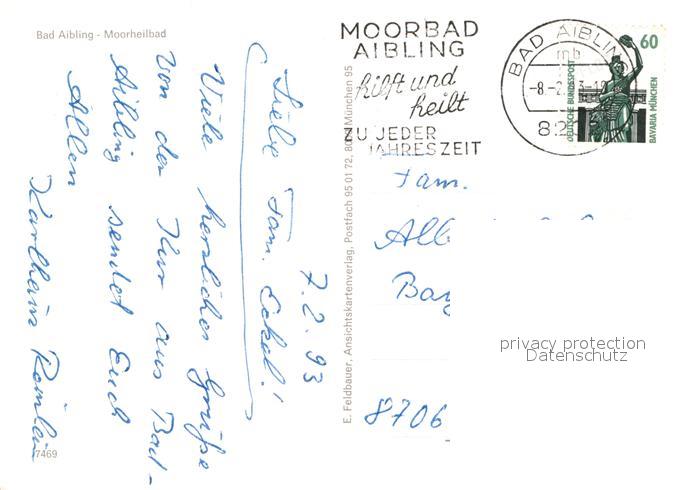 Bad Aibling - Moorheilbad
7.2.93
Liebe Fam. Eckel!
Viele herzliche Grüße
von der Kur aus Bad-
Aibling sendet Euch
Allen
Karlheinz
7469
E. Feldbauer, Ansichtskartenverlag, Postfach 95 01 72, München 95
MOORBAD
AIBLING
hilft und
heilt
ZU JEDER
JAHRESZEIT
BAD AIBLIN
mb
-8.-2.
82
60
DEUTSCHE BUNDESPOST
BAVARIA MÜNCHEN
Fam.
8706
privacy protection
Datenschutz